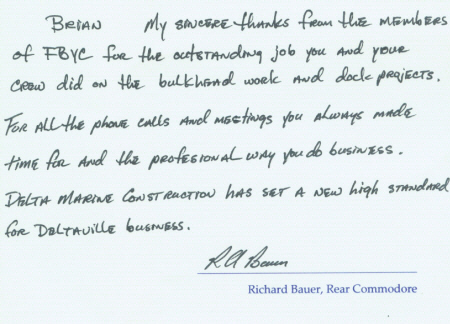 Brian My sincere thanks from the members
of FBYC for the outstanding job you and your
crew did on the bulkhead work and dock projects.
For all the phone calls and meetings you always made
time for and the profesional way you do business.
Delta Marine Construction has set a new high standard
for Deltaville business.
RA Bauer
Richard Bauer, Rear Commodore